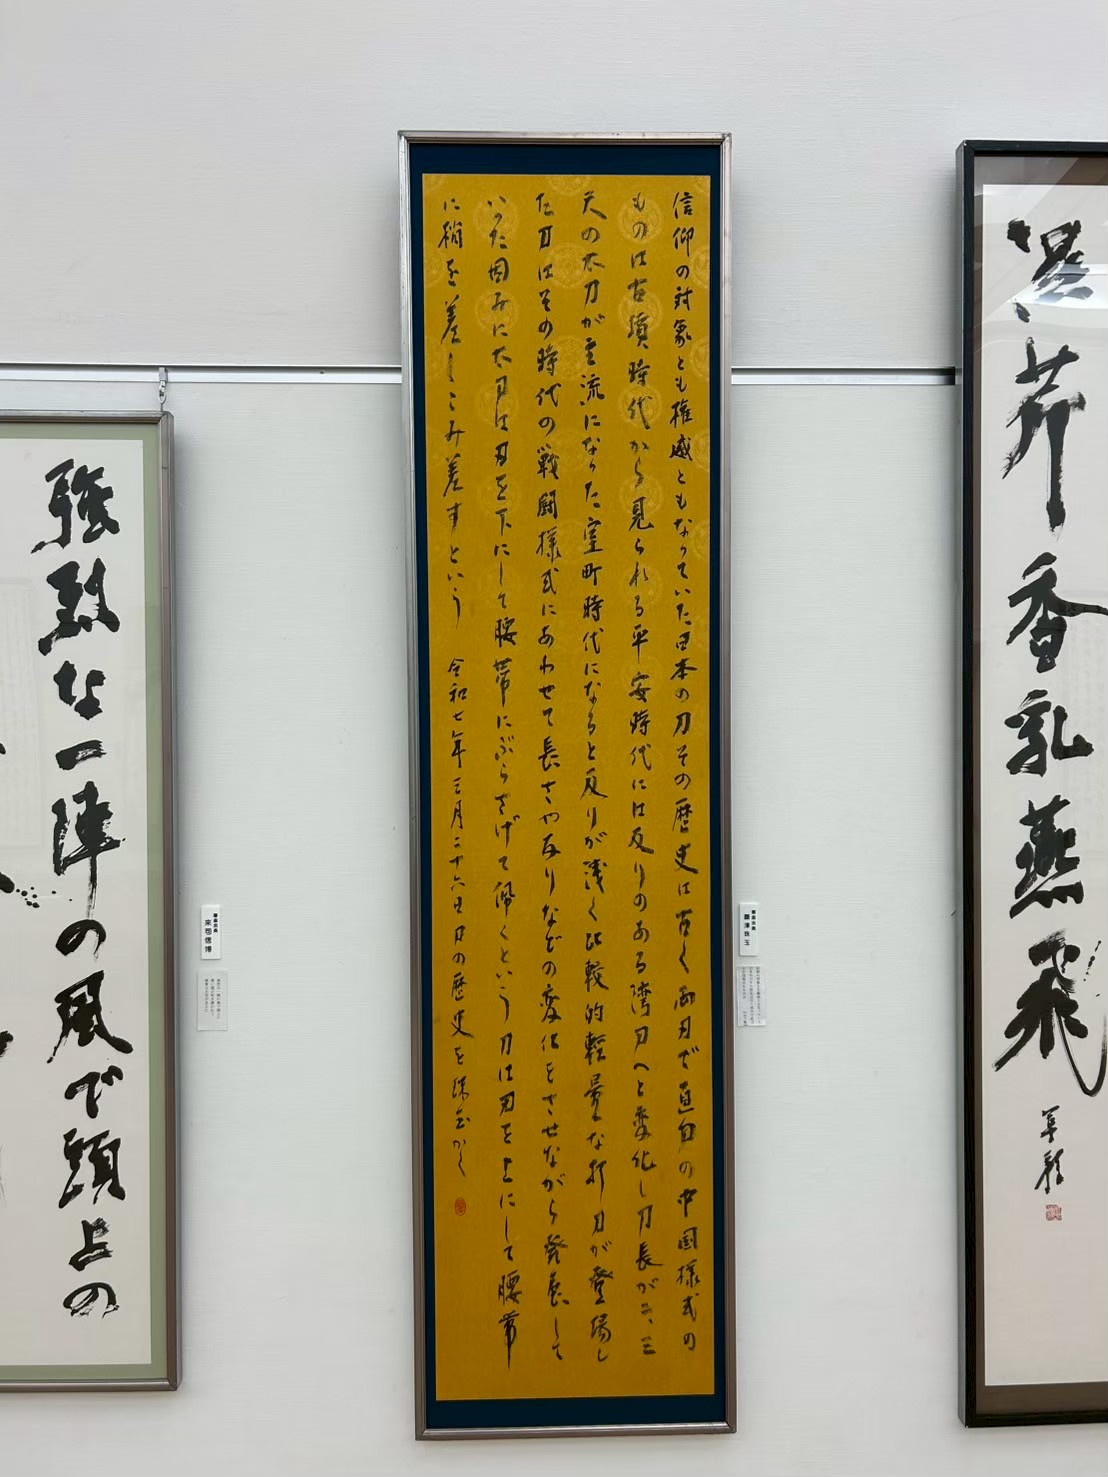 信仰の対象とも権威ともなっていた日本の刀その歴史は古く両刃で直身の中国様式の
ものは古墳時代から見られる平安時代には反りのある湾刀へと変化し刀長が二、三
尺の太刀が主流になった室町時代になると反りが浅く比較的軽量な打刀が登場し
た刀はその時代の戦闘様式にあわせて長さや反りなどの変化をさせながら発展して
いった因みに太刀は刃を下にして腰帯にぶらさげて佩くという刀は刃を上にして腰帯
に鞘を差しこみ差すという 令和七年三月二十六日刀の歴史を珠玉かく
強烈な一陣の風で頭上の
芹香乳燕飛